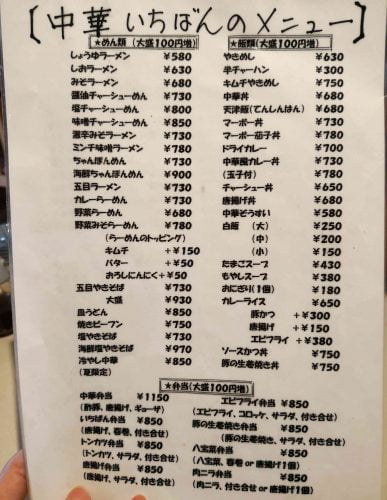 【中華いちばんのメニュー】
★めん類（大盛100円増）
しょうゆラーメン ￥580
しおラーメン ￥630
みそラーメン ￥680
醤油チャーシューめん ￥730
塩チャーシューめん ￥800
味噌チャーシューめん ￥850
激辛みそラーメン ￥730
ミンチ味噌ラーメン ￥730
ちゃんぽんめん ￥730
海鮮ちゃんぽんめん ￥900
五目ラーメン ￥730
カレーらーめん ￥730
野菜らーめん ￥680
野菜みそらーめん ￥780
（らーめんのトッピング）
キムチ +￥150
バター +￥50
おろしにんにく+￥50
五目やきそば ￥730
大盛 ￥930
皿うどん ￥850
焼きビーフン ￥750
塩やきそば ￥730
海鮮塩やきそば ￥970
冷やし中華 ￥850
（夏限定）
★飯類（大盛100円増）
やきめし ￥630
半チャーハン ￥300
キムチやきめし ￥750
中華丼 ￥680
天津飯（てんしんはん） ￥680
マーボー丼 ￥730
マーボー茄子丼 ￥780
ドライカレー ￥700
中華風カレー丼 ￥730
（玉子付） ￥780
チャーシュー丼 ￥650
唐揚げ丼 ￥680
中華ぞうすい ￥580
白飯 （大） ￥250
（中） ￥200
（小） ￥150
たまごスープ ￥430
もやしスープ ￥380
おにぎり（1個） ￥180
カレーライス ￥650
豚かつ +￥300
唐揚げ +￥150
エビフライ +￥380
ソースかつ丼 ￥750
豚の生姜焼き丼 ￥750
★弁当（大盛100円増）
中華弁当 ￥1150
（酢豚、唐揚げ、ギョーザ）
いちばん弁当 ￥850
（唐揚げ、春巻、付け合せ）
トンカツ弁当 ￥850
（トンカツ、サラダ、付け合せ）
唐揚げ弁当 ￥850
エビフライ弁当 ￥850
（エビフライ、コロッケ、サラダ、付け合せ）
豚の生姜焼き弁当 ￥850
（豚の生姜焼き、サラダ、付け合せ）
八宝菜弁当 ￥850
（八宝菜、春巻 or 唐揚げ1個）
肉ニラ弁当 ￥850
（肉ニラ、付き合せ or 唐揚げ1個）